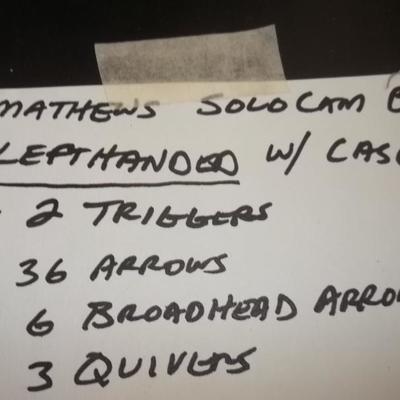 MATHEWS SOLOCAM
LEFTHANDED W/ CASE
2 TRIGGERS
36 ARROWS
6 BROADHEAD
3 QUIVERS